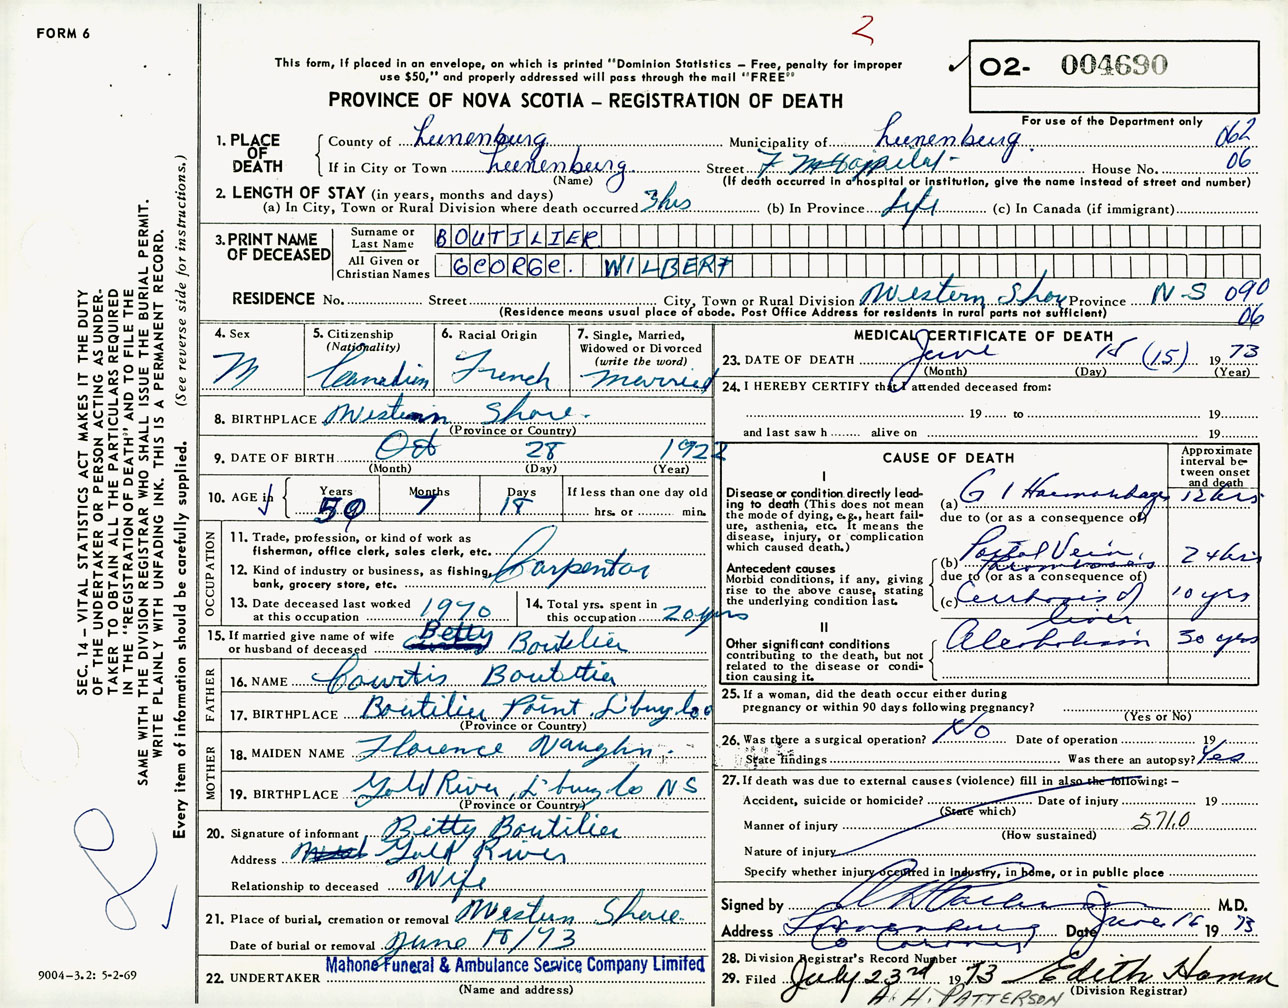 FORM 6
2
This form, if placed in an envelope, on which is printed "Dominion Statistics – Free, penalty for improper
use $50," and properly addressed will pass through the mail "FREE"
PROVINCE OF NOVA SCOTIA – REGISTRATION OF DEATH
O2- 004690
For use of the Department only
1. PLACE OF DEATH
County of Lunenburg Municipality of Lunenburg 062
If in City or Town Lunenburg Street F M Hospital House No. 06
(Name) (If death occurred in a hospital or institution, give the name instead of street and number)
2. LENGTH OF STAY (in years, months and days)
(a) In City, Town or Rural Division where death occurred 3 hrs (b) In Province Life (c) In Canada (if immigrant)
3. PRINT NAME OF DECEASED
Surname or Last Name BOUTILIER
All Given or Christian Names GEORGE. WILBERT
RESIDENCE No. Street City, Town or Rural Division Western Shore Province N-S 090
(Residence means usual place of abode. Post Office Address for residents in rural parts not sufficient) 06
4. Sex M
5. Citizenship (Nationality) Canadien
6. Racial Origin French
7. Single, Married, Widowed or Divorced (write the word) Married
8. BIRTHPLACE Western Shore.
(Province or Country)
9. DATE OF BIRTH Oct 28 1922
(Month) (Day) (Year)
10. AGE is Years 50 Months 7 Days 18 If less than one day old
hrs. or min.
OCCUPATION
11. Trade, profession, or kind of work as
fisherman, office clerk, sales clerk, etc. Carpentor
12. Kind of industry or business, as fishing,
bank, grocery store, etc.
13. Date deceased last worked at this occupation 1970
14. Total yrs. spent in this occupation 20 yrs
15. If married give name of wife or husband of deceased Betty Boutilier
FATHER
16. NAME Courtis Boutilier
17. BIRTHPLACE Boutilier Point, L'burg Co
(Province or Country)
MOTHER
18. MAIDEN NAME Florence Vaughn.
19. BIRTHPLACE Gold River, L'burg Co N S
(Province or Country)
20. Signature of informant Betty Boutilier
Address Gold River
Relationship to deceased Wife
21. Place of burial, cremation or removal Western Shore
Date of burial or removal June 18/73
22. UNDERTAKER Mahone Funeral & Ambulance Service Company Limited
(Name and address)
MEDICAL CERTIFICATE OF DEATH
23. DATE OF DEATH June 15 (15) 19 73
(Month) (Day) (Year)
24. I HEREBY CERTIFY that I attended deceased from:
19 to 19
and last saw h alive on 19
CAUSE OF DEATH
Approximate interval between onset and death
I
Disease or condition directly leading to death (This does not mean the mode of dying, e.g., heart failure, asthenia, etc. It means the disease, injury, or complication which caused death.)
(a) G I Haemorrhage 12 hrs
due to (or as a consequence of)
Antecedent causes
Morbid conditions, if any, giving rise to the above cause, stating the underlying condition last.
(b) Portal Vein Thrombosis 24 hrs
due to (or as a consequence of)
(c) Cirrhosis of liver 10 yrs
II
Other significant conditions
contributing to the death, but not related to the disease or condition causing it.
Alcoholism 30 yrs
25. If a woman, did the death occur either during
pregnancy or within 90 days following pregnancy?
(Yes or No)
26. Was there a surgical operation? No Date of operation 19
State findings Was there an autopsy? Yes
27. If death was due to external causes (violence) fill in also the following: –
Accident, suicide or homicide? Date of injury 19
(State which)
Manner of injury 571.0
(How sustained)
Nature of injury
Specify whether injury occurred in industry, in home, or in public place
Signed by M.D.
Address Lunenburg Date June 16 19 73
Co Coroner
28. Division Registrar's Record Number
29. Filed July 23rd 1973 Edith Hamm
(Division Registrar)
H. H. PATTERSON
SEC. 14 – VITAL STATISTICS ACT MAKES IT THE DUTY
OF THE UNDERTAKER OR PERSON ACTING AS UNDER-
TAKER TO OBTAIN ALL THE PARTICULARS REQUIRED
IN THE "REGISTRATION OF DEATH" AND TO FILE THE
SAME WITH THE DIVISION REGISTRAR WHO SHALL ISSUE THE BURIAL PERMIT.
WRITE PLAINLY WITH UNFADING INK. THIS IS A PERMANENT RECORD.
Every item of information should be carefully supplied. (See reverse side for instructions.)
9004-3.2: 5-2-69